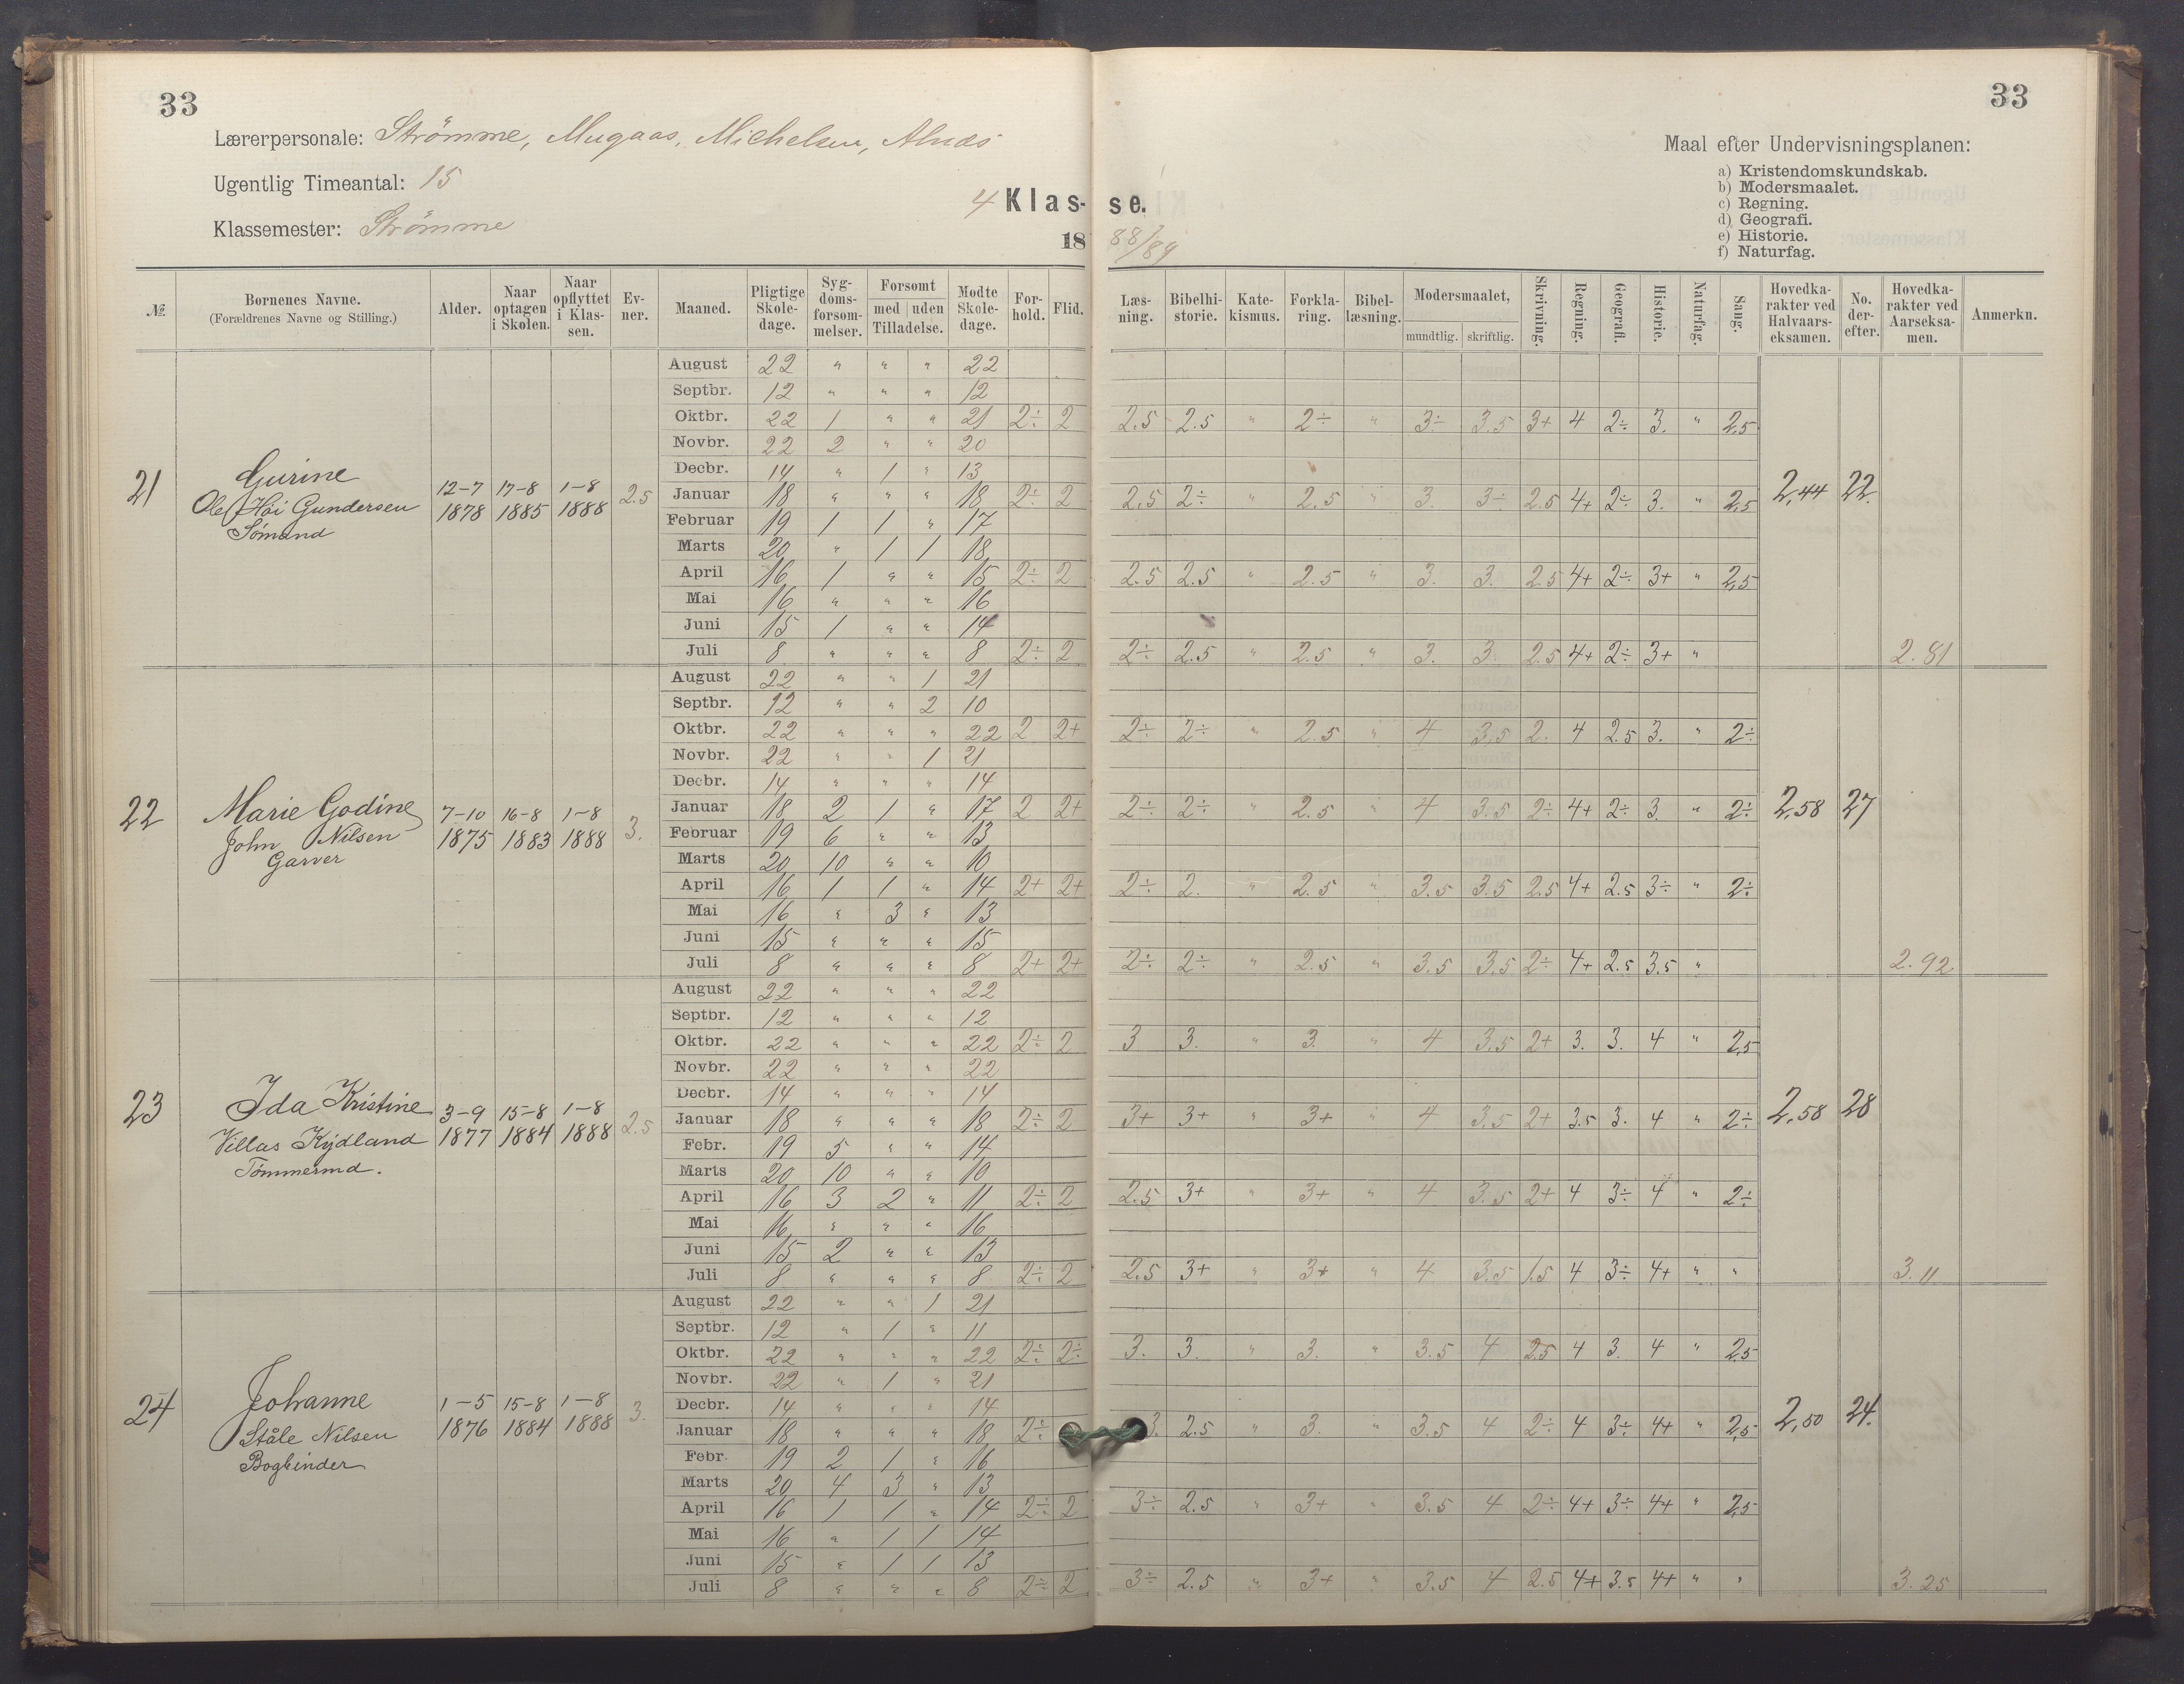 33
33
Lærerpersonale: Strömme, Mugaas, Michelsen,
Ugentlig Timeantal: 15
Klassemester: Strömme
4 Klas- se.
18 88/89
Maal efter Undervisningsplanen:
a) Kristendomskundskab.
b) Modersmaalet.
c) Regning.
d) Geografi.
e) Historie.
f) Naturfag.
№ Børnenes Navne. (Forældrenes Navne og Stilling.) Alder. Naar optagen i Skolen. Naar opflyttet i Klas-sen. Ev-ner. Maaned. Pligtige Skole-dage. Syg-doms-forsøm-melser. Forsømt med uden Tilladelse. Mødte Skole-dage. For-hold. Flid. Læs-ning. Bibelhi-storie. Kate-kismus. Forkla-ring. Bibel-læsning. Modersmaalet, mundtlig. skriftlig. Skrivning. Regning. Geografi. Historie. Naturfag. Sang. Hovedka-rakter ved Halvaars-eksamen. No. der-efter. Hovedka-rakter ved Aarseksa-men. Anmerkn.
21 Gurine
Ole Höi Gundersen
Sömand
12-7 1878 17-8 1885 1-8 1888 2.5
August 22 " " " 22
Septbr. 12 " " " 12
Oktbr. 22 1 " " 21 2÷ 2 2.5 2.5 " 2÷ " 3÷ 3.5 3+ 4 2÷ 3. " 2.5
Novbr. 22 2 " " 20
Decbr. 14 " 1 " 13
Januar 18 " " " 18 2÷ 2 2.5 2÷ " 2.5 " 3. 3÷ 2.5 4+ 2÷ 3. " 2.5 2,44 22.
Februar 19 1 1 " 17
Marts 20 " 1 1 18
April 16 1 " " 15 2÷ 2 2.5 2.5 " 2.5 " 3. 3. 2.5 4+ 2÷ 3+ " 2,5
Mai 16 " " " 16
Juni 15 1 " " 14
Juli 8 " " " 8 2÷ 2 2÷ 2.5 " 2.5 " 3. 3. 2.5 4+ 2÷ 3+ " 2.81
22 Marie Godine
John Nilsen
Garver
7-10 1875 16-8 1883 1-8 1888 3.
August 22 " " 1 21
Septbr. 12 " " 2 10
Oktbr. 22 " " " 22 2 2+ 2÷ 2÷ " 2.5 " 4 3.5 2. 4 2.5 3. " 2÷
Novbr. 22 " " 1 21
Decbr. 14 " " " 14
Januar 18 2 1 " 17 2 2+ 2÷ 2÷ " 2.5 " 4 3.5 2÷ 4+ 2÷ 3. " 2÷ 2,58 27
Februar 19 6 " " 13
Marts 20 10 " " 10
April 16 1 1 " 14 2+ 2+ 2÷ 2. " 2.5 " 3.5 3.5 2.5 4+ 2.5 3÷ " 2÷
Mai 16 " 3 " 13
Juni 15 " " " 15
Juli 8 " " " 8 2+ 2+ 2÷ 2÷ " 2.5 " 3.5 3.5 2÷ 4+ 2.5 3.5 " 2.92
23 Ida Kristine
Villas Kydland
Tömmermd.
3-9 1877 15-8 1884 1-8 1888 2.5
August 22 " " " 22
Septbr. 12 " " " 12
Oktbr. 22 " " " 22 2÷ 2 3 3. " 3. " 4 3.5 2+ 3. 3. 4 " 2,5
Novbr. 22 " " " 22
Decbr. 14 " " " 14
Januar 18 " " " 18 2÷ 2 3+ 3+ " 3+ " 4 3.5 2+ 3.5 3. 4 " 2÷ 2,58 28
Febr. 19 5 " " 14
Marts 20 10 " " 10
April 16 3 2 " 11 2÷ 2 2.5 3+ " 3+ " 4 3.5 2+ 4 3÷ 4 " 2÷
Mai 16 " " " 16
Juni 15 2 " " 13
Juli 8 " " " 8 2÷ 2 2.5 3+ " 3+ " 4 3.5 1.5 4 3÷ 4+ " " 3.11
24 Johanne
Ståle Nilsen
Bogbinder
1-5 1876 15-8 1884 1-8 1888 3.
August 22 " " 1 21
Septbr. 12 " 1 " 11
Oktbr. 22 " " " 22 2÷ 2÷ 3. 3. " 3. " 3.5 4 2.5 4 3. 4 " 2,5
Novbr. 22 " 1 " 21
Decbr. 14 " " " 14
Januar 18 " " " 18 2÷ 3. 2.5 " 3. " 3.5 4 2÷ 4 3÷ 4+ " 2,5 2,50 24.
Febr. 19 2 1 " 16
Marts 20 4 3 " 13
April 16 1 1 " 14 2÷ 2 3÷ 2.5 " 3+ " 3.5 4 2÷ 4+ 3÷ 4+ " 2,5
Mai 16 " 1 1 14
Juni 15 " 1 1 13
Juli 8 " " " 8 2÷ 2 3÷ 2.5 " 3+ " 3.5 4 2.5 4+ 3.5 4+ " " 3.25